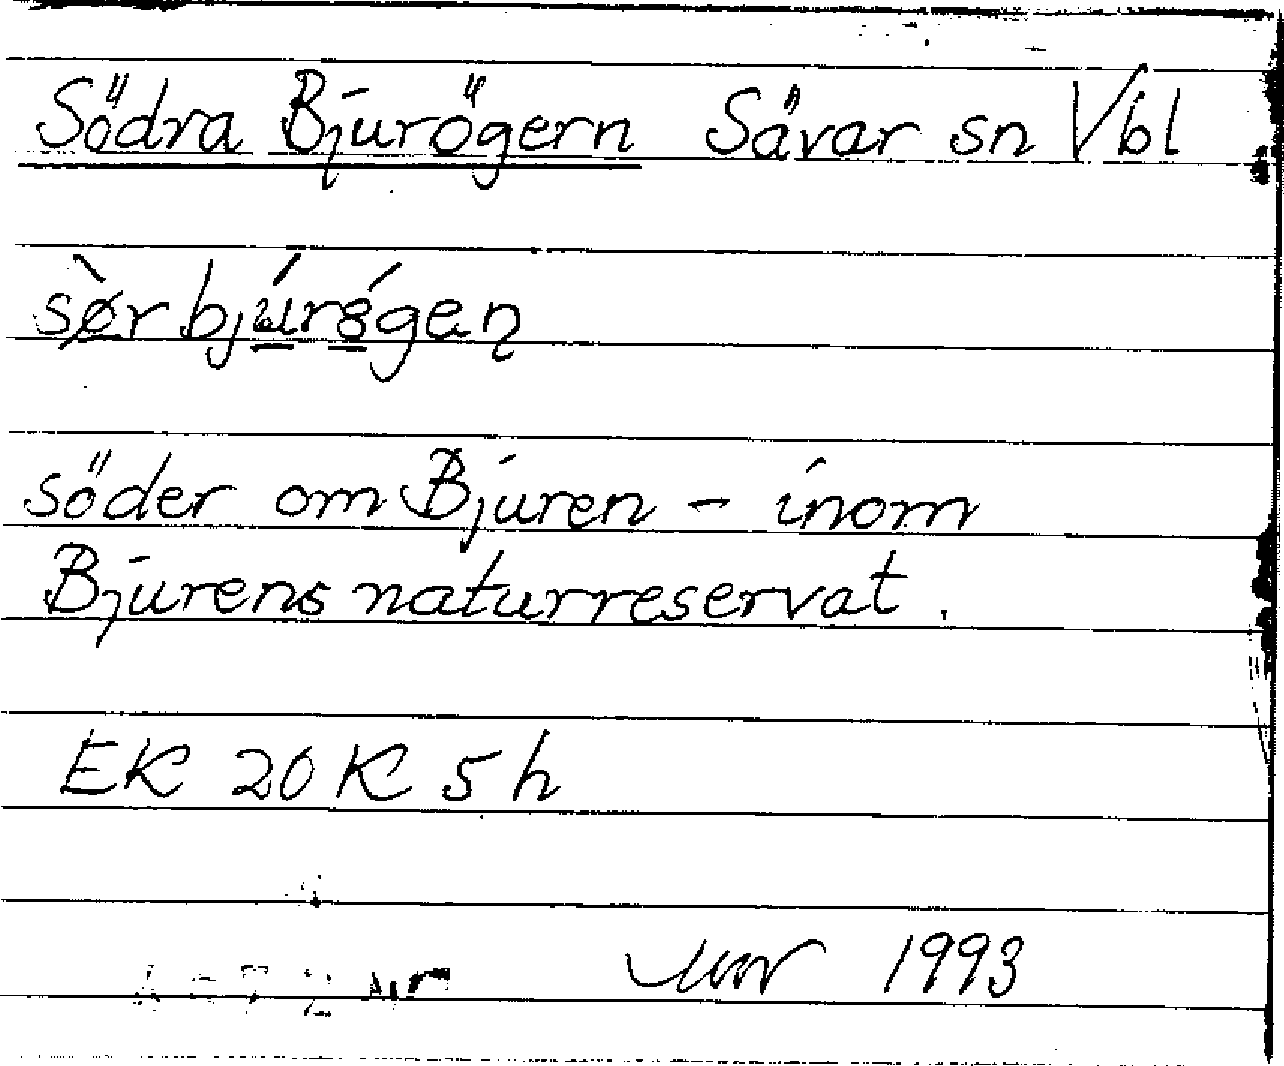 Södra Bjurögern Sävar sn Vbl
sø̀r bjúrǿgen̩
söder om Bjuren - inom
Bjurens naturreservat.
EK 20 K 5 h
1993